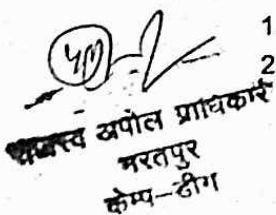 1
2
राजस्व अपील प्राधिकारी
भरतपुर
केम्प-डीग